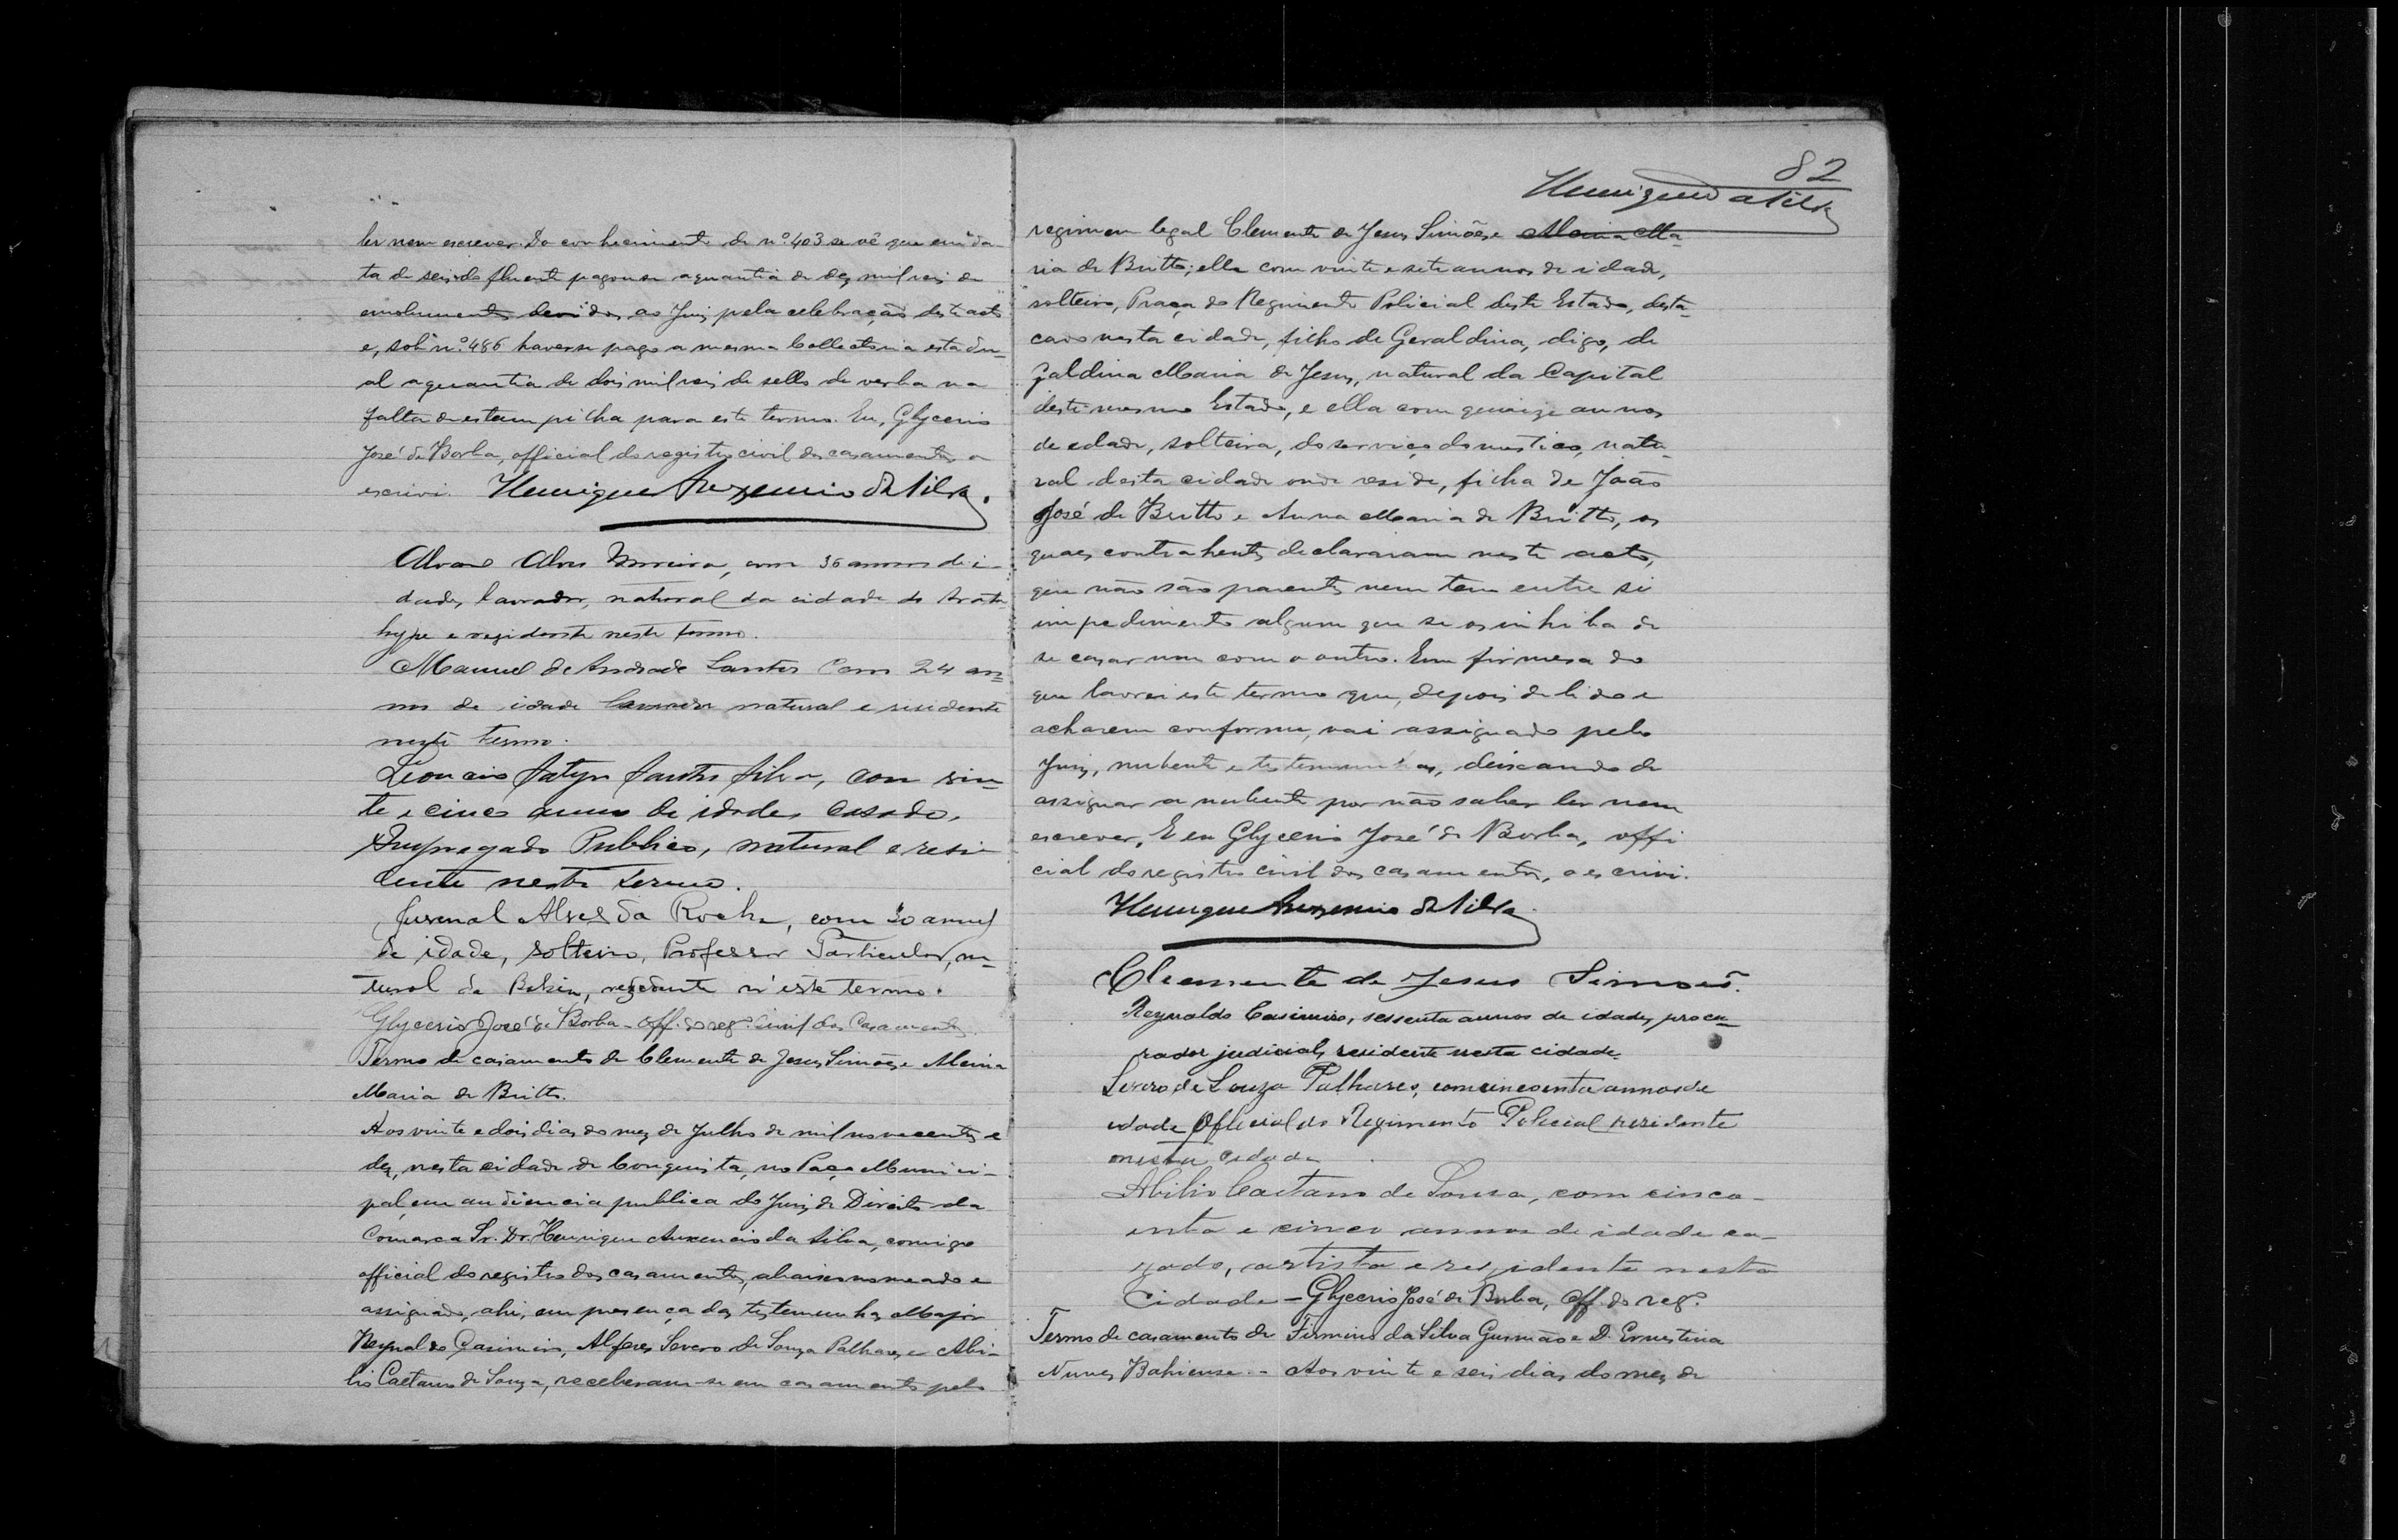 ler nem escrever. Do conhecimento de nº 403 se vê que em da-
ta de seis do fluente pagou-se a quantia de dez mil reis de
emolumentos devidos ao Juiz pela celebração deste acto
e, sob nº 486 haver-se pago a mesma Collectoria estadu-
al a quantia de dois mil reis de sello de verba na
falta de estampilha para este termo. Eu, Glycerio
José de Borba, official do registro civil dos casamentos o
escrevi. Henrique Auxencio da Silva.
Alvaro Alves Moreira, com 36 annos de i-
dade, lavrador, natural da cidade de
hype e residente neste termo.
Manuel de Andrade Santos com 24 an-
nos de idade lavrador natural e residente
neste termo.
Leoncio Satyro Santos Silva, com vin-
te e cinco annos de idade, casado,
Empregado Publico, natural e resi-
dente neste termo.
Juvenal Alves da Rocha, com 30 annos
de idade, solteiro, Professor Particular, na-
tural da Bahia, residente n'este termo.
Glycerio José de Borba - Off. do reg.º Civil dos Casamentos
Termo de casamento de Clemente de Jesus Simões e Alcina
Maria de Britto.
Aos vinte e dois dias do mez de Julho de mil novecentos e
dez, nesta cidade de Conquista, no Paço Munici-
pal, em audiencia publica do Juiz de Direito da
Comarca Sr. Dr. Henrique Auxencio da Silva, comigo
official do registro dos casamentos, abaixo nomeado e
assignado, ahi, em presença das testemunhas Major
Reynaldo Casimiro, Alferes Severo de Souza Palhares e Abi-
lio Caetano de Souza, receberam-se em casamento pelo
82
Henrique da Silva
regimen legal Clemente de Jesus Simões e Alcina Ma-
ria de Britto; elle com vinte e sete annos de idade,
solteiro, Praça do Regimento Policial deste Estado, desta-
cado nesta cidade, filho de Geraldina, digo, de
Galdina Maria de Jesus, natural da Capital
deste mesmo Estado, e ella com quinze annos
de edade, solteira, do serviço domestico, natu-
ral desta cidade onde reside, filha de João
José de Britto e Anna Maria de Britto, os
quaes contrahentes declararam neste acto,
que não são parentes nem tem entre si
impedimento algum que se os inhiba de
se casar um com o outro. Em firmesa do
que lavrei este termo que, depois de lido e
acharem conforme, vai assignado pelo
Juiz, nubente e testemunhas, deixando de
assignar a nubente por não saber ler nem
escrever. E eu Glycerio José de Borba, offi
cial do registro civil dos casamentos, o escrivi.
Henrique Auxencio da Silva
Clemente de Jesus Simoes.
Reynaldo Casimiro, sessenta annos de idade, procu-
rador judicial, residente nesta cidade.
Severo de Souza Palhares, com cincoenta annos de
idade Official do Regimento Policial residente
nesta cidade
Abilio Caetano de Sousa, com cinco-
enta e cinco annos de idade ca-
zado, artista e rezidente nesta
Cidade - Glycerio José de Borba, Off. do reg.º
Termo de casamento de Firmino da Silva Gusmão e D. Ernestina
Nunes Bahiense. - Aos vinte e seis dias do mez de